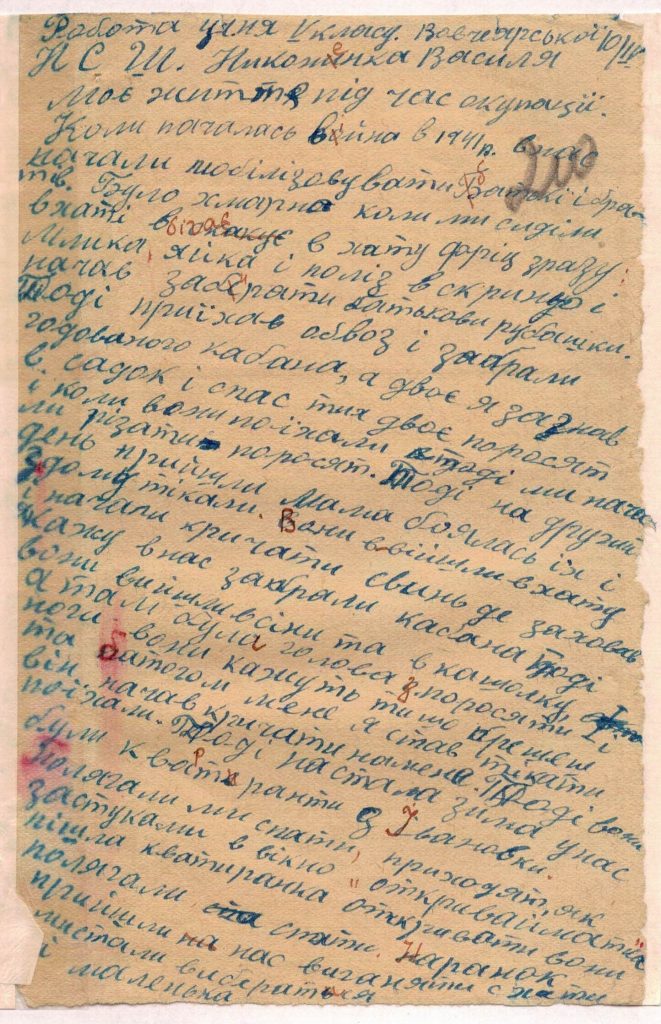 Робота учня V класу. Вовчярської 10/IV
Н С Ш. Никоненка Василя
Моє життя під час окупації.
Коли началась війна в 1941 р. в нас
начали мобілізовувати батьків і бра-
тів. Було хмарно коли ми сиділи
в хаті вбігав в хату фріц зразу:
млика, яйка і поліз в скриню і
начав забірати батькови рубашки.
Тоді приїхав обоз і забрали
годованого кабана, а двоє я загнав
в садок і спас тих двоє поросят
і коли вони поїхали тоді ми нача-
ли різати поросят. Тоді на другий
день прийшли мама боялась їх і
здому тікали. Вони ввійшли в хату
і начали кричати свинь де заховав
я кажу в нас забрали касана тоді
вони вийшли всіни та в кашолку,
а там була голова з поросяти і
ноги вони кажуть ти шо брешеш
та батогом мене я став тікати
він начав кричати намене. Тоді вони
поїхали. Тоді настала зима унас
були квартиранти з Івановки.
Полягали ми спати, приходят, як
застукали в вікно "откривай матка"
пішла кватиранка откривати вони
полягали спати. Наранок
прийшли нас виганяти с хати
ми стали вибераться
і маленька